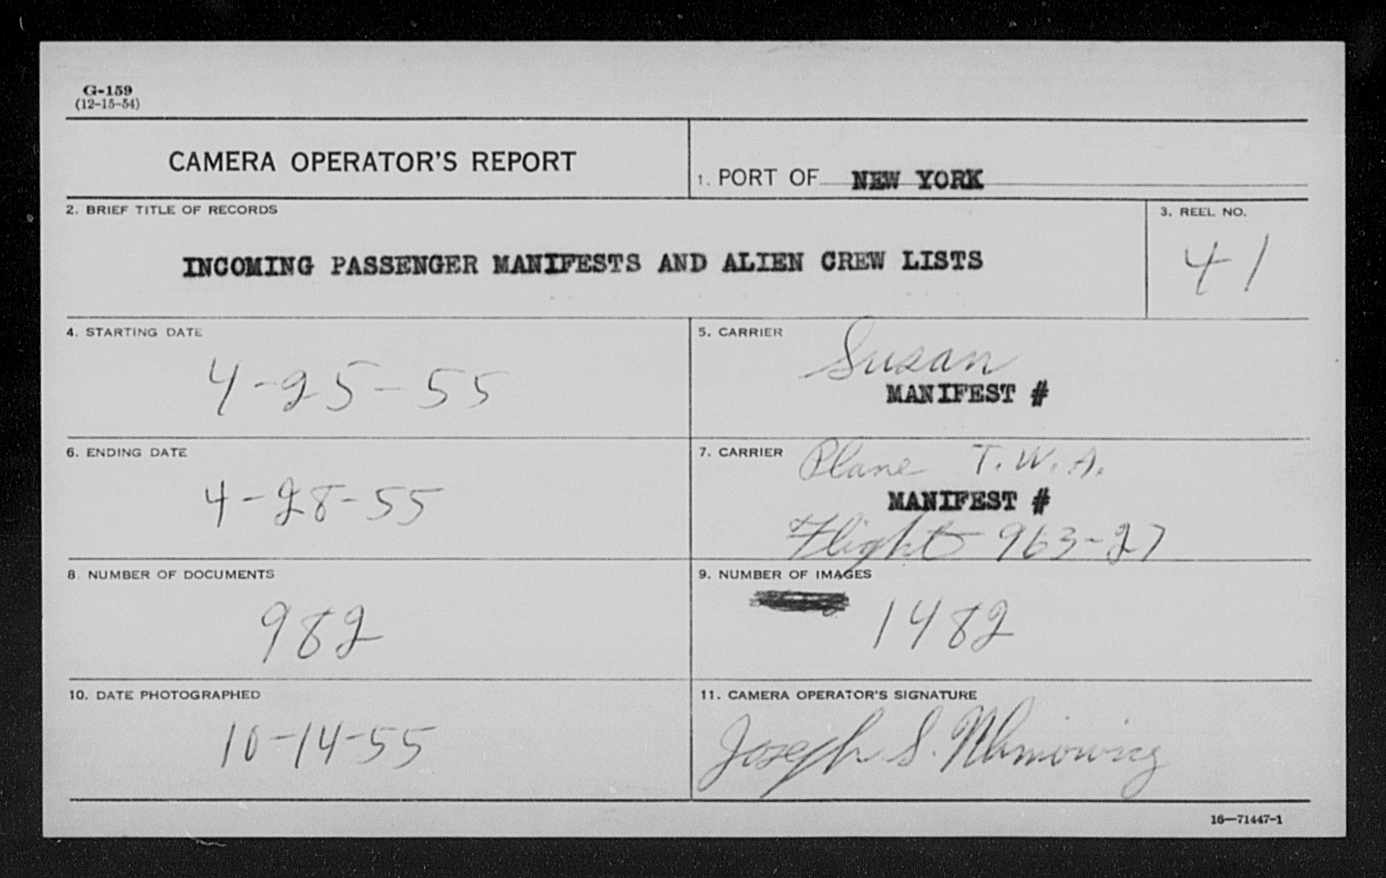 G-159
(12-15-54)
CAMERA OPERATOR'S REPORT
1. PORT OF NEW YORK
2. BRIEF TITLE OF RECORDS
INCOMING PASSENGER MANIFESTS AND ALIEN CREW LISTS
3. REEL NO.
41
4. STARTING DATE
4-25-55
5. CARRIER
Susan
MANIFEST #
6. ENDING DATE
4-28-55
7. CARRIER Plane T.W.A.
MANIFEST #
Flight 963-27
8. NUMBER OF DOCUMENTS
982
9. NUMBER OF IMAGES
1482
10. DATE PHOTOGRAPHED
10-14-55
11. CAMERA OPERATOR'S SIGNATURE
Joseph S.
16—71447-1